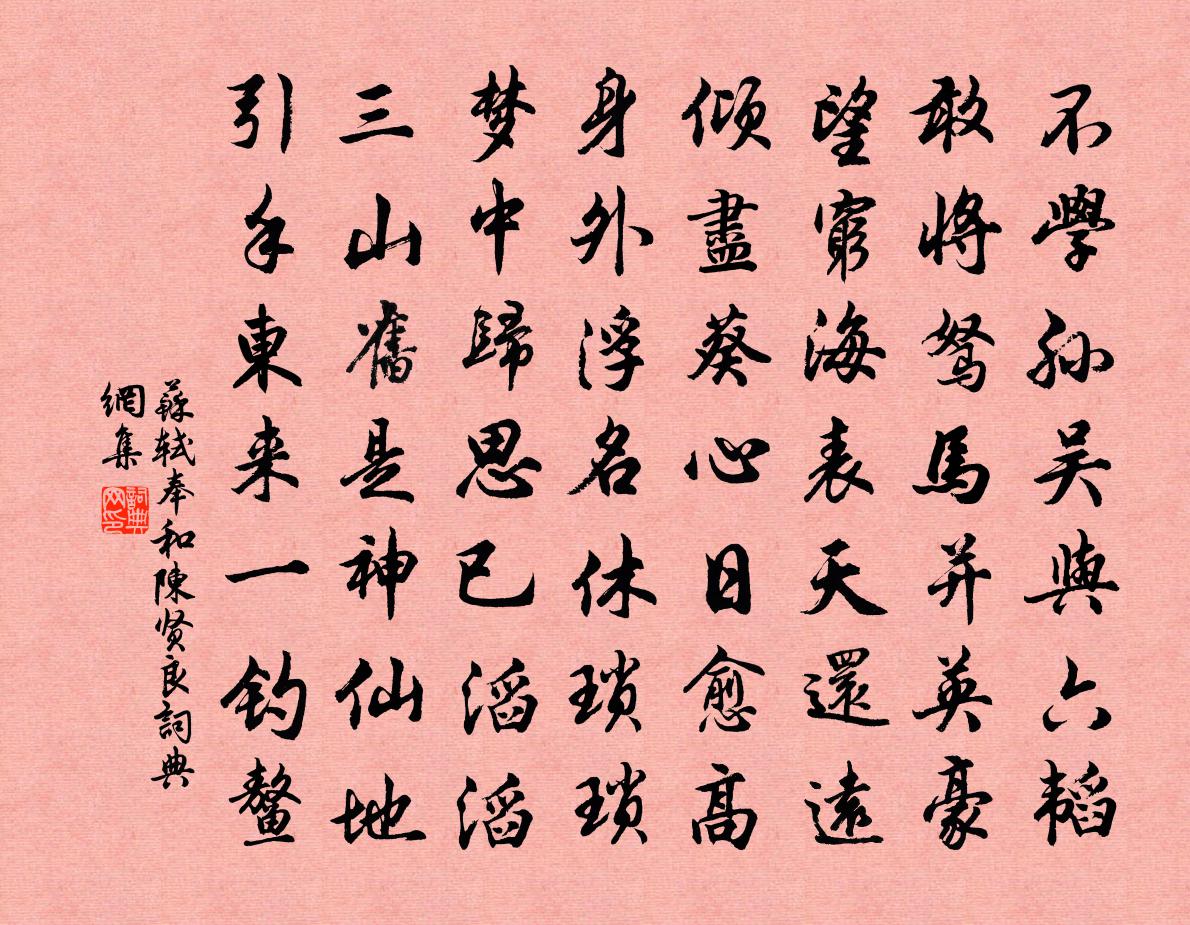 不學孙吴與六韬
敢將駑馬并英豪
望窮海表天還遠
傾盡葵心日愈高
身外浮名休琐琐
梦中歸思已滔滔
三山舊是神仙地
引手東来一钓鳌
蘇軾奉和陳贤良詞典
網集
詞典网印